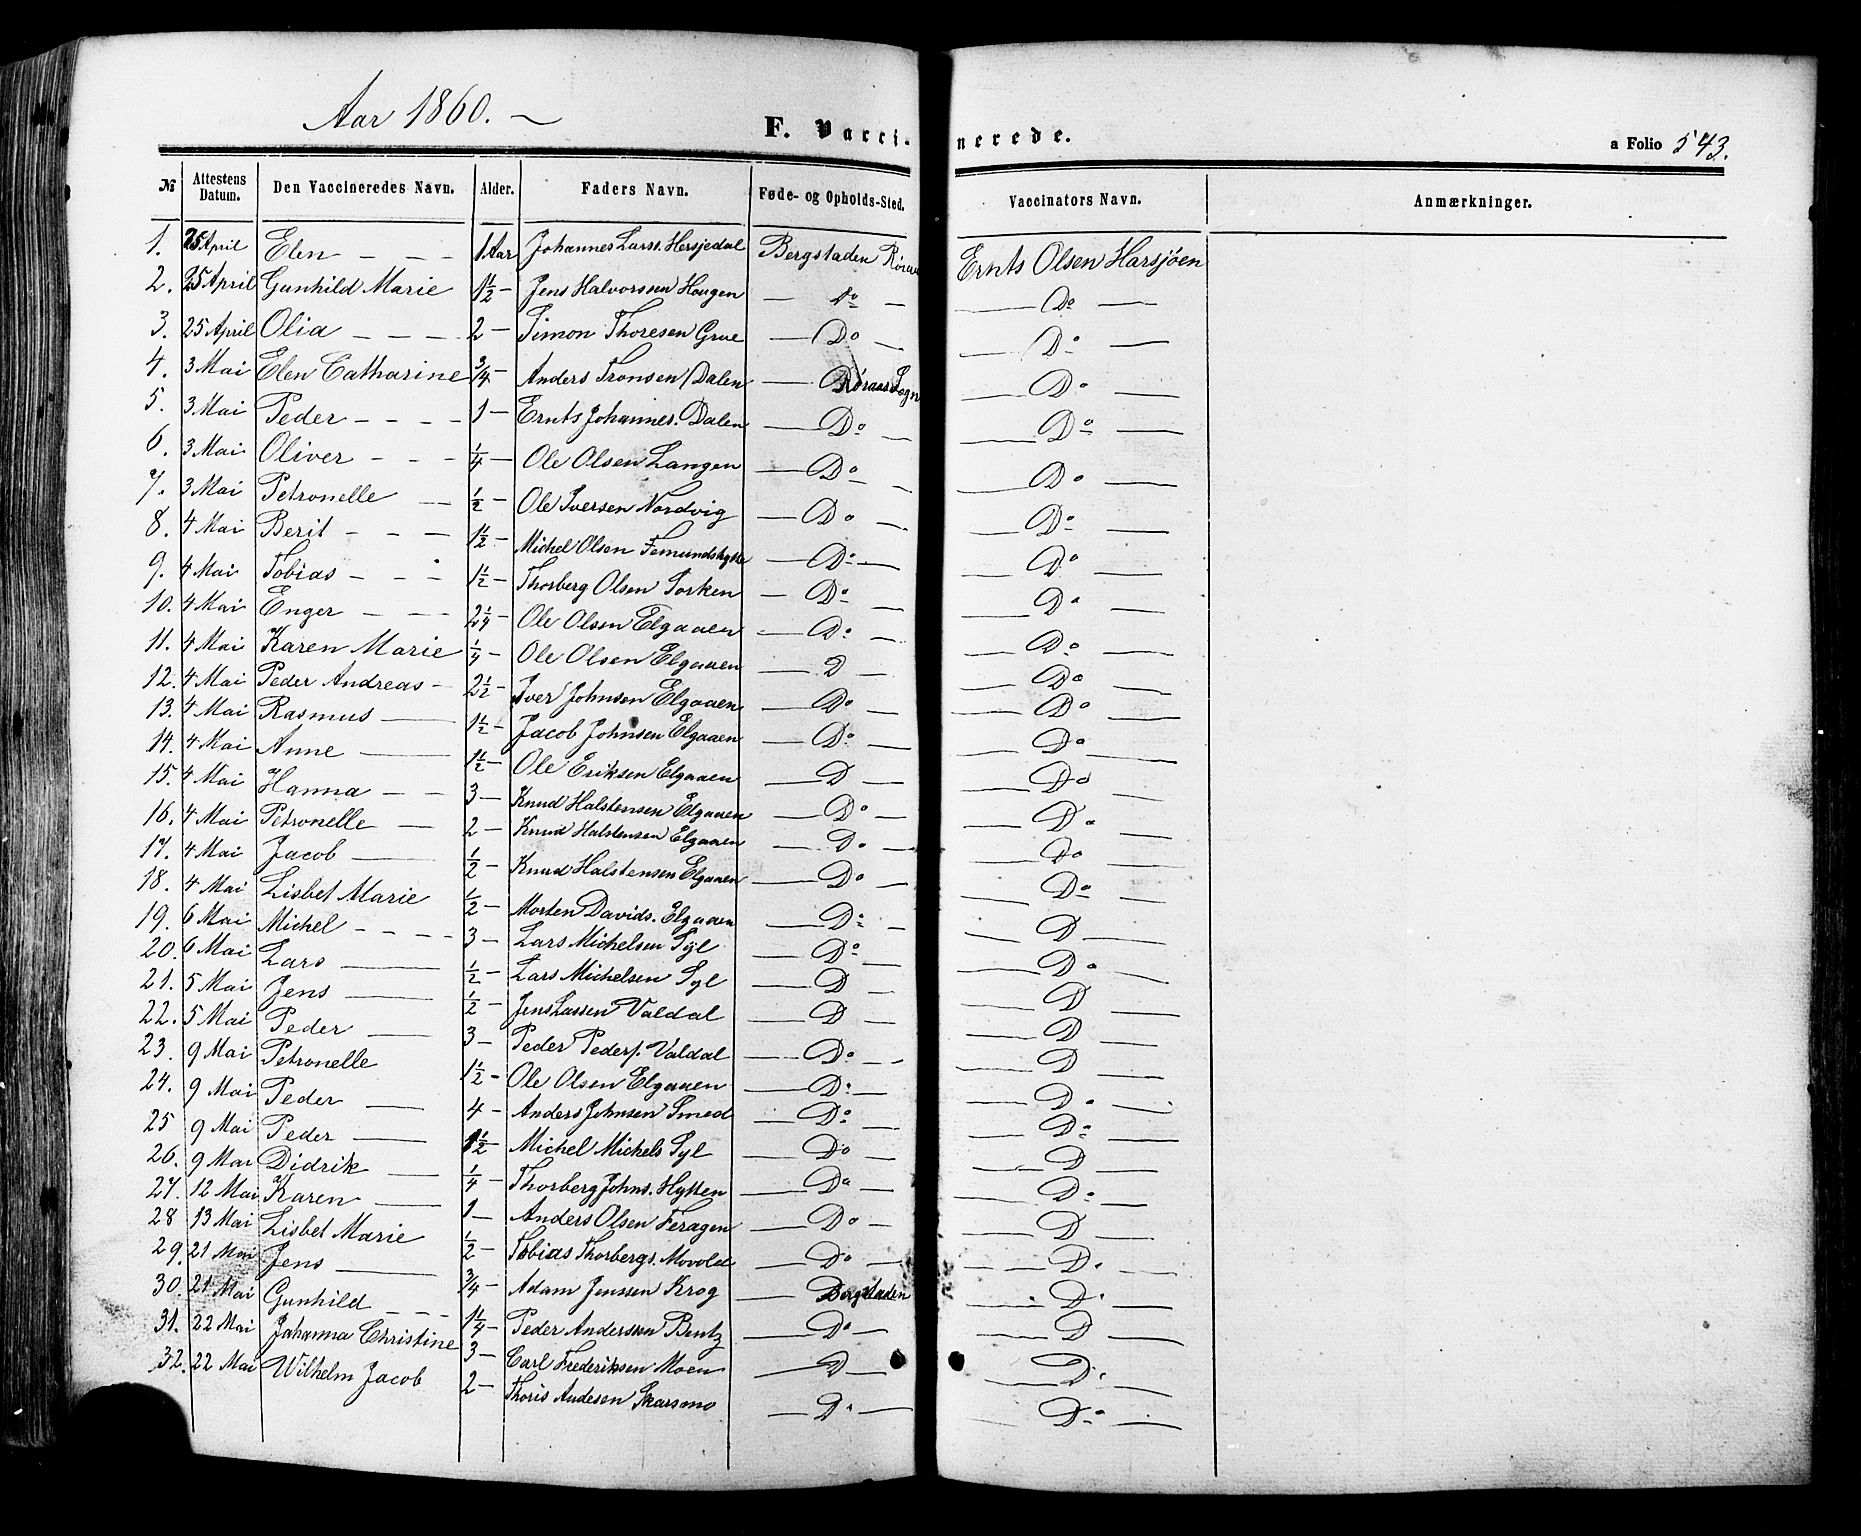 Aar 1860. —
F. Vacci-nerede.
a Folio 543.
№ Attestens Datum. Den Vaccineredes Navn. Alder. Faders Navn. Føde- og Opholds-Sted. Vaccinators Navn. Anmærkninger.
1. 25 April Elen — — — 1 Aar Johannes Larss. Hersjedal Bergstaden Røraas Ernts Olsen Harsjøen
2. 25 April Gunhild Marie 1½ — Jens Halvorssen Hougen — Do — — Do —
3. 25 April Olia — — — 2 — Simon Thoresen Grue — Do — — Do —
4. 3 Mai Elen Catharine 3/4 — Anders Tronsen Dalen — Røraas Sogn — Do —
5. 3 Mai Peder — — — 1 — Ernts Johannes. Dalen — Do — — Do —
6. 3 Mai Oliver — — — 1/4 — Ole Olsen Langen — Do — — Do —
7. 3 Mai Petronelle — 1/2 — Ole Iversen Nordvig — Do — — Do —
8. 4 Mai Berit — — — 1½ — Michel Olsen Femundshytte — Do — — Do —
9. 4 Mai Tobias — — — 1½ — Thorberg Olsen Sorken — Do — — Do —
10. 4 Mai Enger — — — 2¼ — Ole Olsen Elgaaen — Do — — Do —
11. 4 Mai Karen Marie 1/4 — Ole Olsen Elgaaen — D — — Do —
12. 4 Mai Peder Andreas — 2½ — Iver Johnsen Elgaaen — Do — — Do —
13. 4 Mai Rasmus — 1½ — Jacob Johnsen Elgaaen — Do — — Do —
14. 4 Mai Anne — 1½ — Ole Eriksen Elgaaen — D — — Do —
15. 4 Mai Hanna — — 3 — Knud Halstensen Elgaaen — Do — — Do —
16. 4 Mai Petronelle — 2 — Knud Halstensen Elgaaen — Do — — Do —
17. 4 Mai Jacob — 1/2 — Knud Halstensen Elgaaen — Do — — Do —
18. 4 Mai Lisbet Marie 1/2 — Morten Davids. Elgaaen — Do — — Do —
19. 6 Mai Michel — — — — 3 — Lars Michelsen Syl — Do — — D —
20. 6 Mai Lars — 1/2 — Lars Michelsen Syl — D — — Do —
21. 5 Mai Jens — 1/2 — Jens Lassen Valdal — D — — D —
22. 5 Mai Peder — 3 — Peder Peders. Valdal — Do — — D —
23. 9 Mai Petronelle 1½ — Ole Olsen Elgaaen — Do — — D —
24. 9 Mai Peder — 4 — Anders Johnsen Smed — Do — — Do —
25 9 Mai Peder — 1½ — Michel Michels Syl — Do — — Do —
26. 9 Mai Didrik — 1/4 — Thorberg Johns. Hytten — Do — — D —
27. 12 Mai Karen — 1 — Anders Olsen Feragen — Do — — Do —
28 13 Mai Lisbet Marie 1/2 — Tobias Thorbergs. Movold — Do — — D —
29. 21 Mai Jens — 3/4 — Adam Jenssen Krog — Bergstaden — D —
30. 21 Mai Gunhild — — — 1¼ — Peder Anderssen Bentz — Do — — D —
31. 22 Mai Johanna Christine 3 — Carl Frederiksen Moen — D — — D —
32. 22 Mai Wilhelm Jacob 2 — Thoris Andesen Skarsmo — D — — D —
— Do —